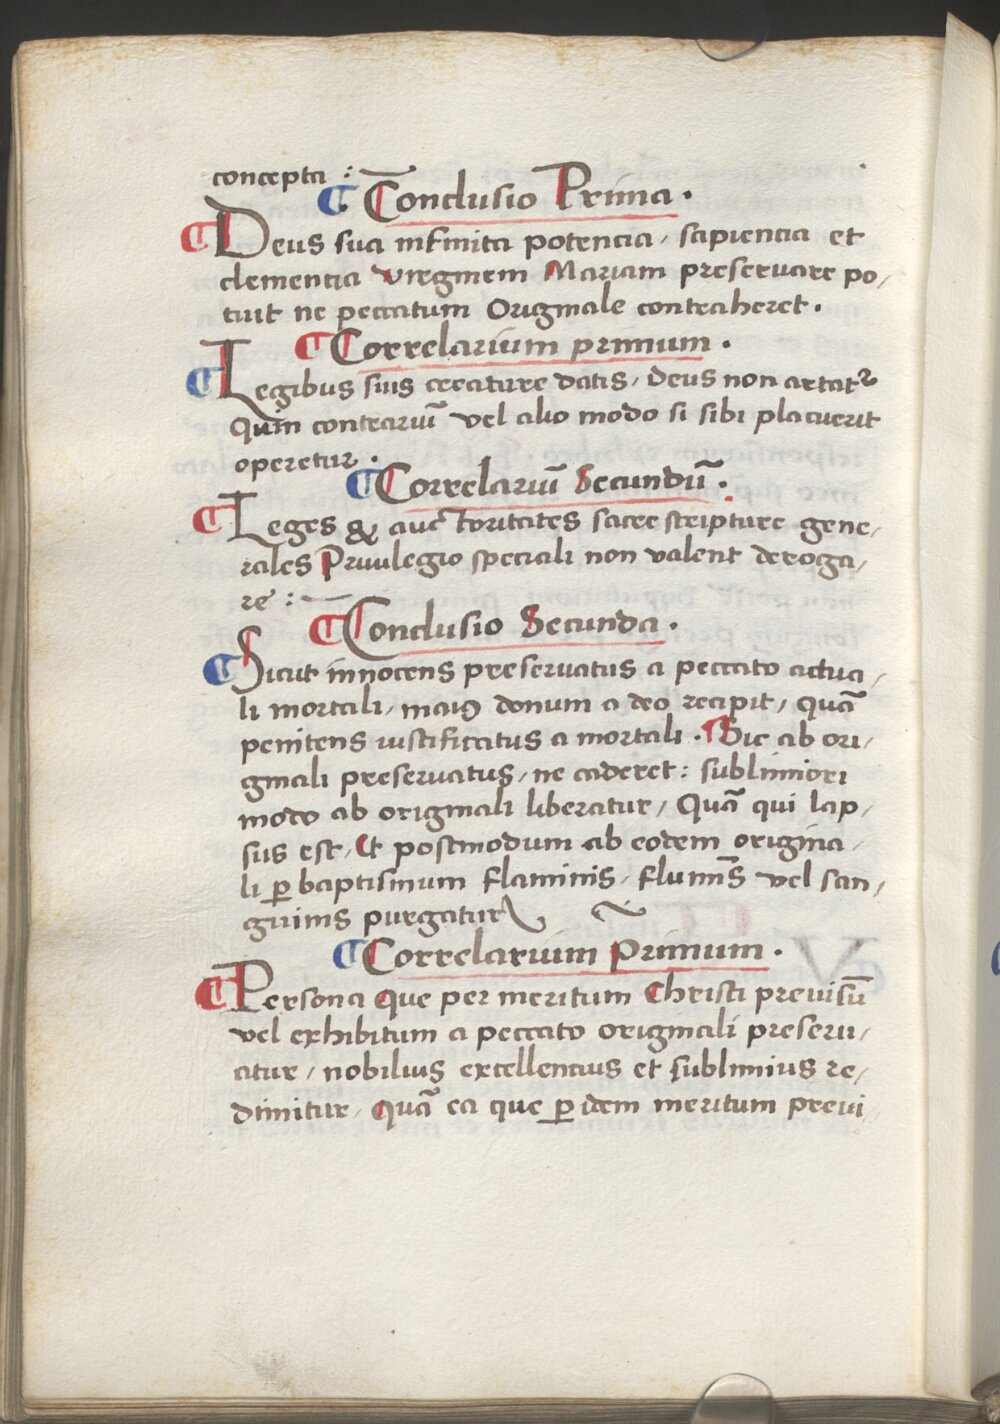 concepta :
¶ Conclusio Prima .
¶ Deus sua infinita potencia / sapiencia et
clementia virginem Mariam preseruare po/
tuit ne peccatum Originale contraheret .
¶ Correlarium primum .
¶ Legibus suis creature datis / Deus non artatꝛ
Quin contrariū vel alio modo si sibi placuerit
operetur .
¶ Correlariū Secundū .
¶ Leges & auctoritates sacre scripture gene/
rales Priuilegio speciali non valent deroga/
re :
¶ Conclusio Secunda .
¶ Sicut innocens preseruatus a peccato actua/
li mortali / maiꝰ donum a deo recipit / quā
penitens iustificatus a mortali . Sic ab ori/
ginali preseruatus / ne caderet : sublimiori
modo ab originali liberatur / Quā qui lap/
sus est / Et postmodum ab eodem origina/
li ꝑ baptismum flaminis / flumīs vel san/
guinis purgatur
¶ Correlarium Primum .
¶ Persona que per meritum Christi preuisū
vel exhibitum a peccato originali preseru/
atur / nobilius excellencius et sublimius re/
dimitur / Quā ea que ꝑ idem meritum preui/